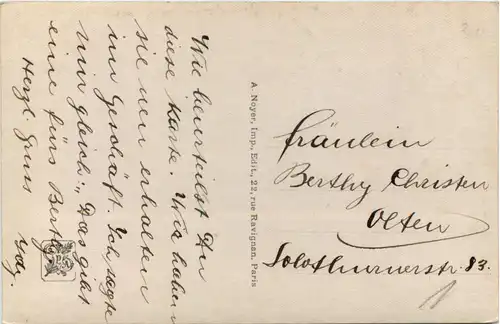 Wie beurteilst Du
diese Karte. Wir haben
sie neu erhalten
im Geschäft. Ich sagte
mir gleich „ Das gibt
eine fürs Berthy
Herzl. Gruss
A. Noyer, Imp., Edit., 22, rue Ravignan, Paris
Fräulein
Berthy Christen
Olten
Solothurnerstr. 83.